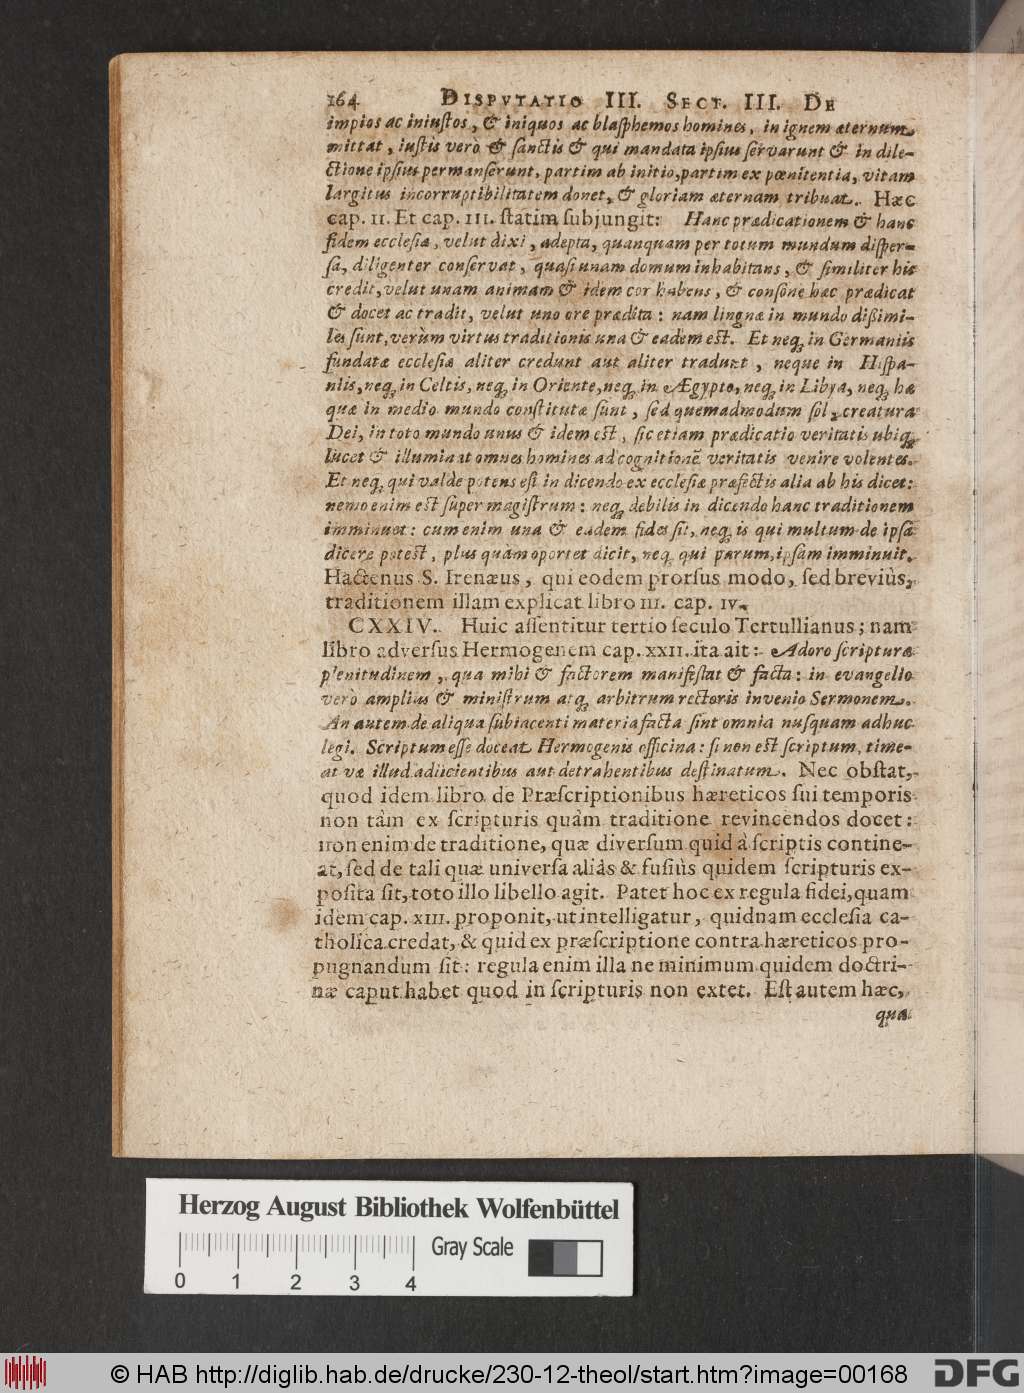 164 DISPVTATIO III. SECT. III. DE
impios ac iniustos, & iniquos ac blasphemos homines, in ignem æternum
mittat, iustis verò & sanctis & qui mandata ipsius servarunt & in dile-
ctione ipsius permanserunt, partim ab initio, partim ex pœnitentia, vitam
largitus incorruptibilitatem donet, & gloriam æternam tribuat. Hæc
cap. II. Et cap. III. statim subjungit: Hanc prædicationem & hanc
fidem ecclesia, velut dixi, adepta, quanquam per totum mundum disper-
sa, diligenter conservat, quasi unam domum inhabitans, & similiter his
credit, velut unam animam & idem cor habens, & consone hæc prædicat
& docet ac tradit, velut uno ore prædita: nam linguæ in mundo dißimi-
les sunt, verùm virtus traditionis una & eadem est. Et neq; in Germaniis
fundatæ ecclesiæ aliter credunt aut aliter tradunt, neque in Hispa-
niis, neq; in Celtis, neq; in Oriente, neq; in Ægypto, neq; in Libya, neq; hæ
quæ in medio mundo constitutæ sunt, sed quemadmodum sol, creatura
Dei, in toto mundo unus & idem est, sic etiam prædicatio veritatis ubiq;
lucet & illuminat omnes homines ad cognitionē veritatis venire volentes.
Et neq; qui valdè potens est in dicendo ex ecclesiæ præfectis alia ab his dicet:
nemo enim est super magistrum: neq; debilis in dicendo hanc traditionem
imminuet: cum enim una & eadem fides sit, neq; is qui multum de ipsa
dicere potest, plus quàm oportet dicit, neq; qui parum, ipsam imminuit.
Hactenus S. Irenæus, qui eodem prorsus modo, sed breviùs,
traditionem illam explicat libro III. cap. IV.
CXXIV. Huic assentitur tertio seculo Tertullianus; nam
libro adversus Hermogenem cap. XXII. ita ait: Adoro scripturæ
plenitudinem, qua mihi & factorem manifestat & facta: in evangelio
verò amplius & ministrum atq; arbitrum rectoris invenio Sermonem.
An autem de aliqua subiacenti materia facta sint omnia nusquam adhuc
legi. Scriptum esse doceat Hermogenis officina: si non est scriptum, time-
at væ illud adiicientibus aut detrahentibus destinatum. Nec obstat,
quod idem libro de Præscriptionibus hæreticos sui temporis
non tàm ex scripturis quàm traditione revincendos docet:
non enim de traditione, quæ diversum quid à scriptis contine-
at, sed de tali quæ universa aliàs & fusiùs quidem scripturis ex-
posita sit, toto illo libello agit. Patet hoc ex regula fidei, quam
idem cap. XIII. proponit, ut intelligatur, quidnam ecclesia ca-
tholica credat, & quid ex præscriptione contra hæreticos pro-
pugnandum sit: regula enim illa ne minimum quidem doctri-
næ caput habet quod in scripturis non extet. Est autem hæc,
qua
Herzog August Bibliothek Wolfenbüttel
Gray Scale
0 1 2 3 4
© HAB http://diglib.hab.de/drucke/230-12-theol/start.htm?image=00168 DFG